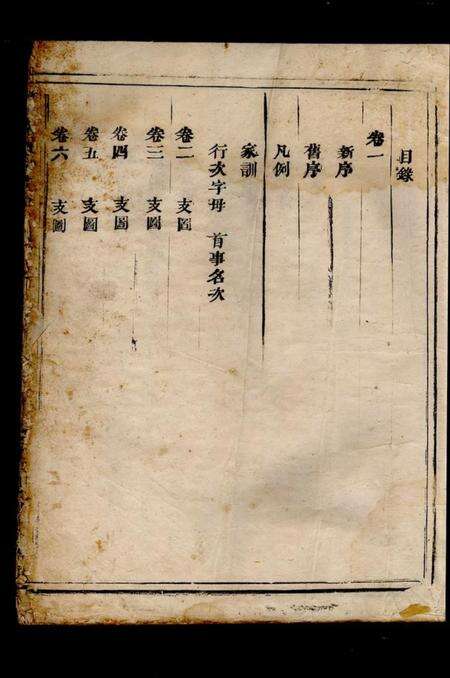 目錄
卷一
新序
舊序
凡例
家訓
行次字母 首事名次
卷二 支圖
卷三 支圖
卷四 支圖
卷五 支圖
卷六 支圖